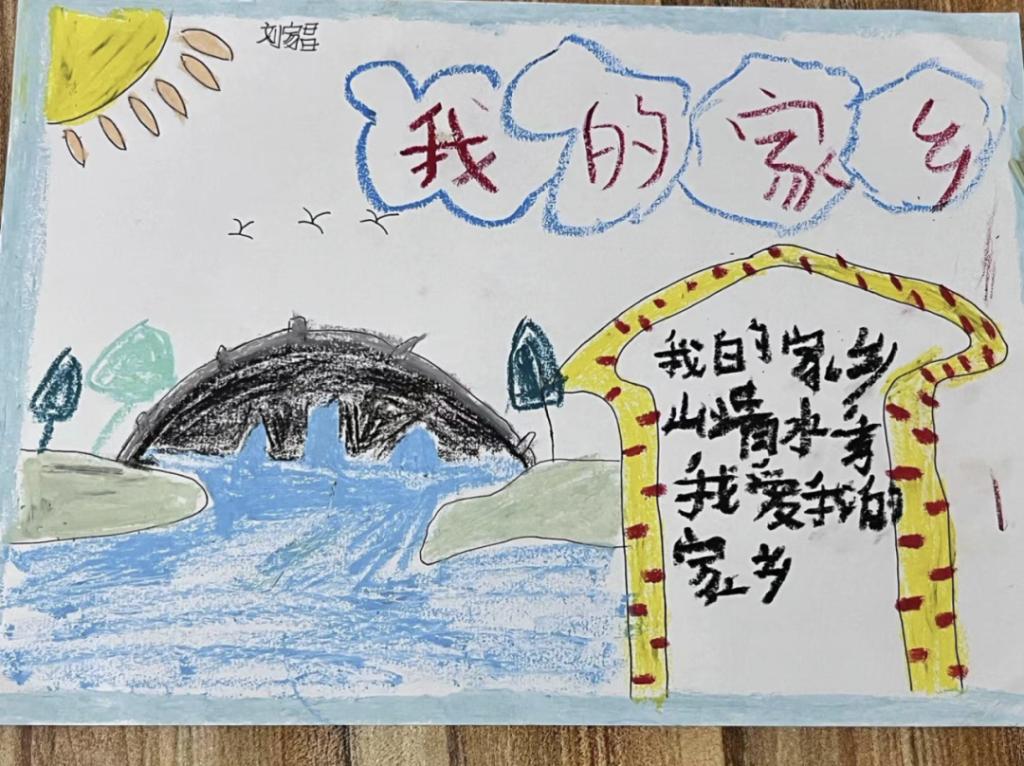 刘家昌
我的家乡
我的家乡
山清水秀
我爱我的
家乡